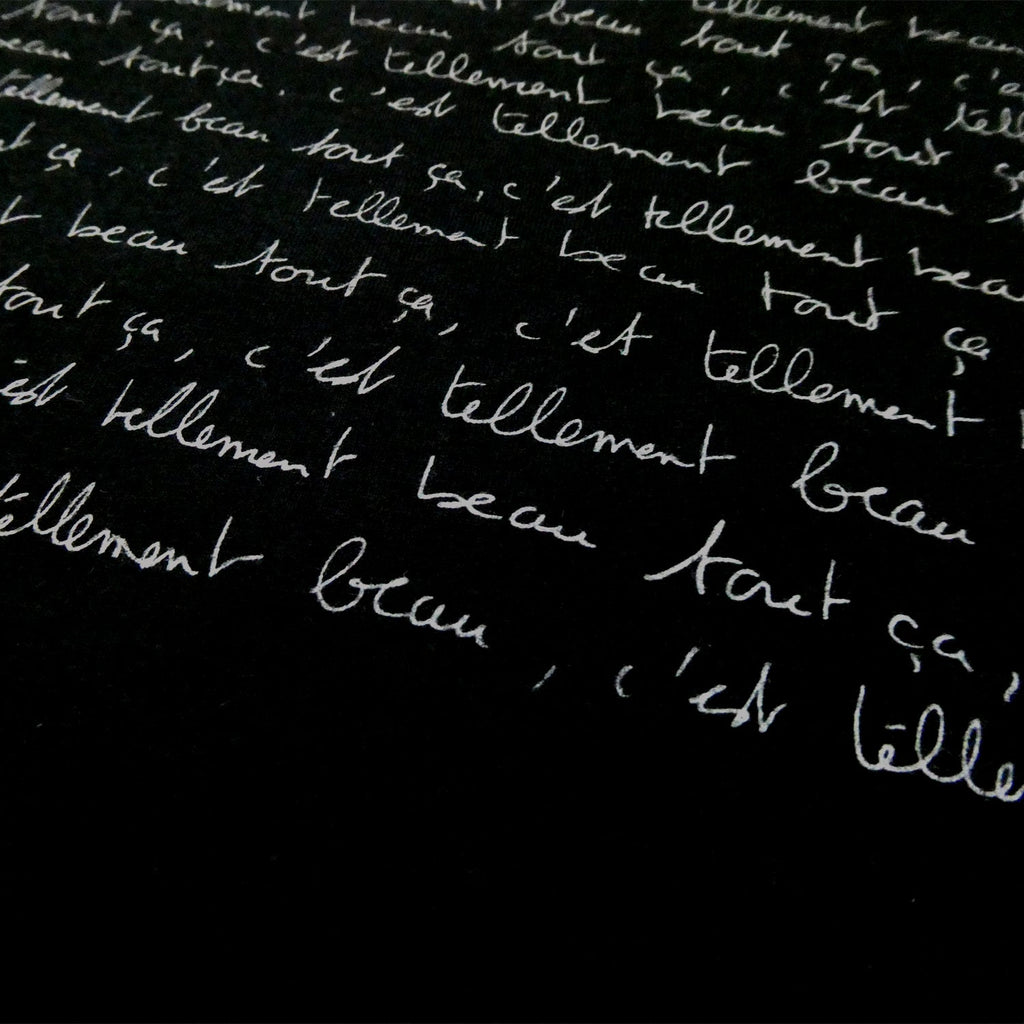 tellement beau
beau tout ça, c'e
ement beau tout ça, c'est tell
tout ça, c'est tellement beau tout ça
eau tout ça. c'est tellement beau t
tellement beau tout ça, c'est tellement beau
ut ça, c'est tellement beau tout ça
t beau tout ça, c'et tellement
tout ça, c'est tellement beau
est tellement beau tout ça,
tellement beau, c'est telle